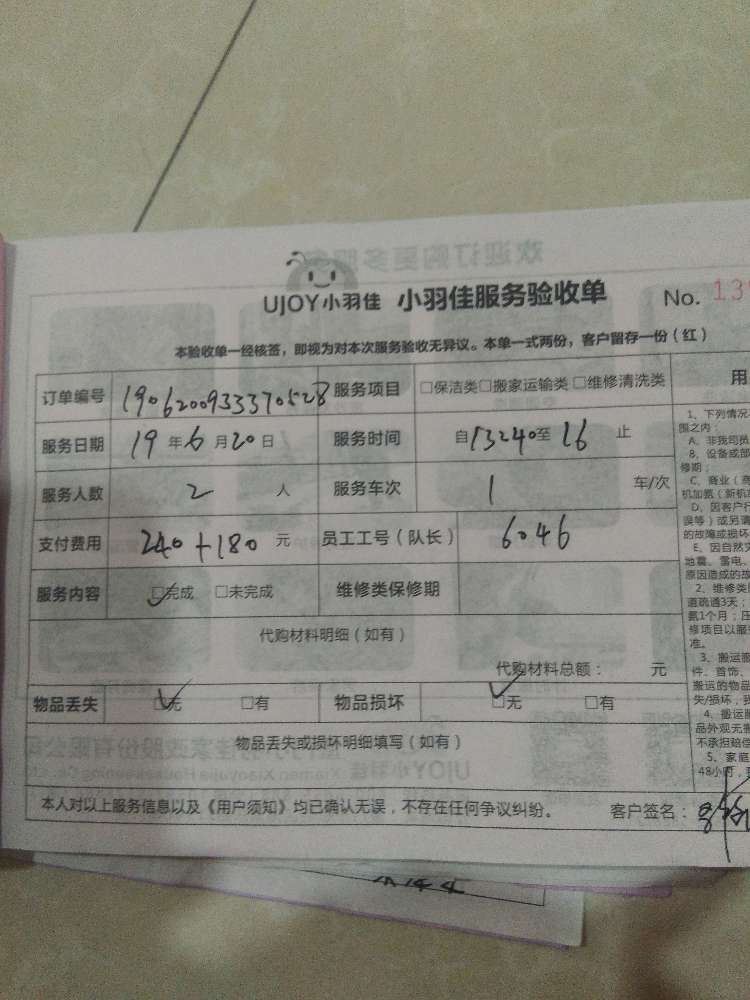 UJOY小羽佳 小羽佳服务验收单 No. 13
本验收单一经核签，即视为对本次服务验收无异议。本单一式两份，客户留存一份（红）
订单编号 1906200933370528 服务项目 □保洁类□搬家运输类□维修清洗类
服务日期 19年6月20日 服务时间 自13:40至16止
服务人数 2人 服务车次 1车/次
支付费用 240+180元 员工工号（队长） 6046
服务内容 □完成 □未完成 维修类保修期
代购材料明细（如有）
代购材料总额： 元
物品丢失 □无 □有 物品损坏 □无 □有
物品丢失或损坏明细填写（如有）
本人对以上服务信息以及《用户须知》均已确认无误，不存在任何争议纠纷。 客户签名：
用
1、下列情况
围之内：
A、非我司员
B、设备或部
修期；
C、商业（商
机加氨（新机
D、因客户行
误等）或另请
的故障或损坏
E、因自然灾
地震、雷电、
原因造成的故
2、维修类
道疏通3天；
氨1个月；压
修项目以服
准。
3、搬运服
件、首饰、
搬运的物品
失/损坏，我
4、搬运服
品外观无搬
不承担赔偿
5、家庭
48小时，